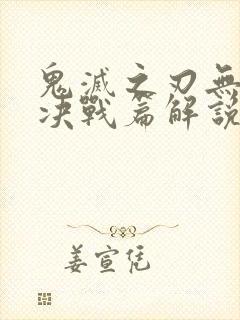 鬼滅之刃無
決戰篇解說
姜宣凭